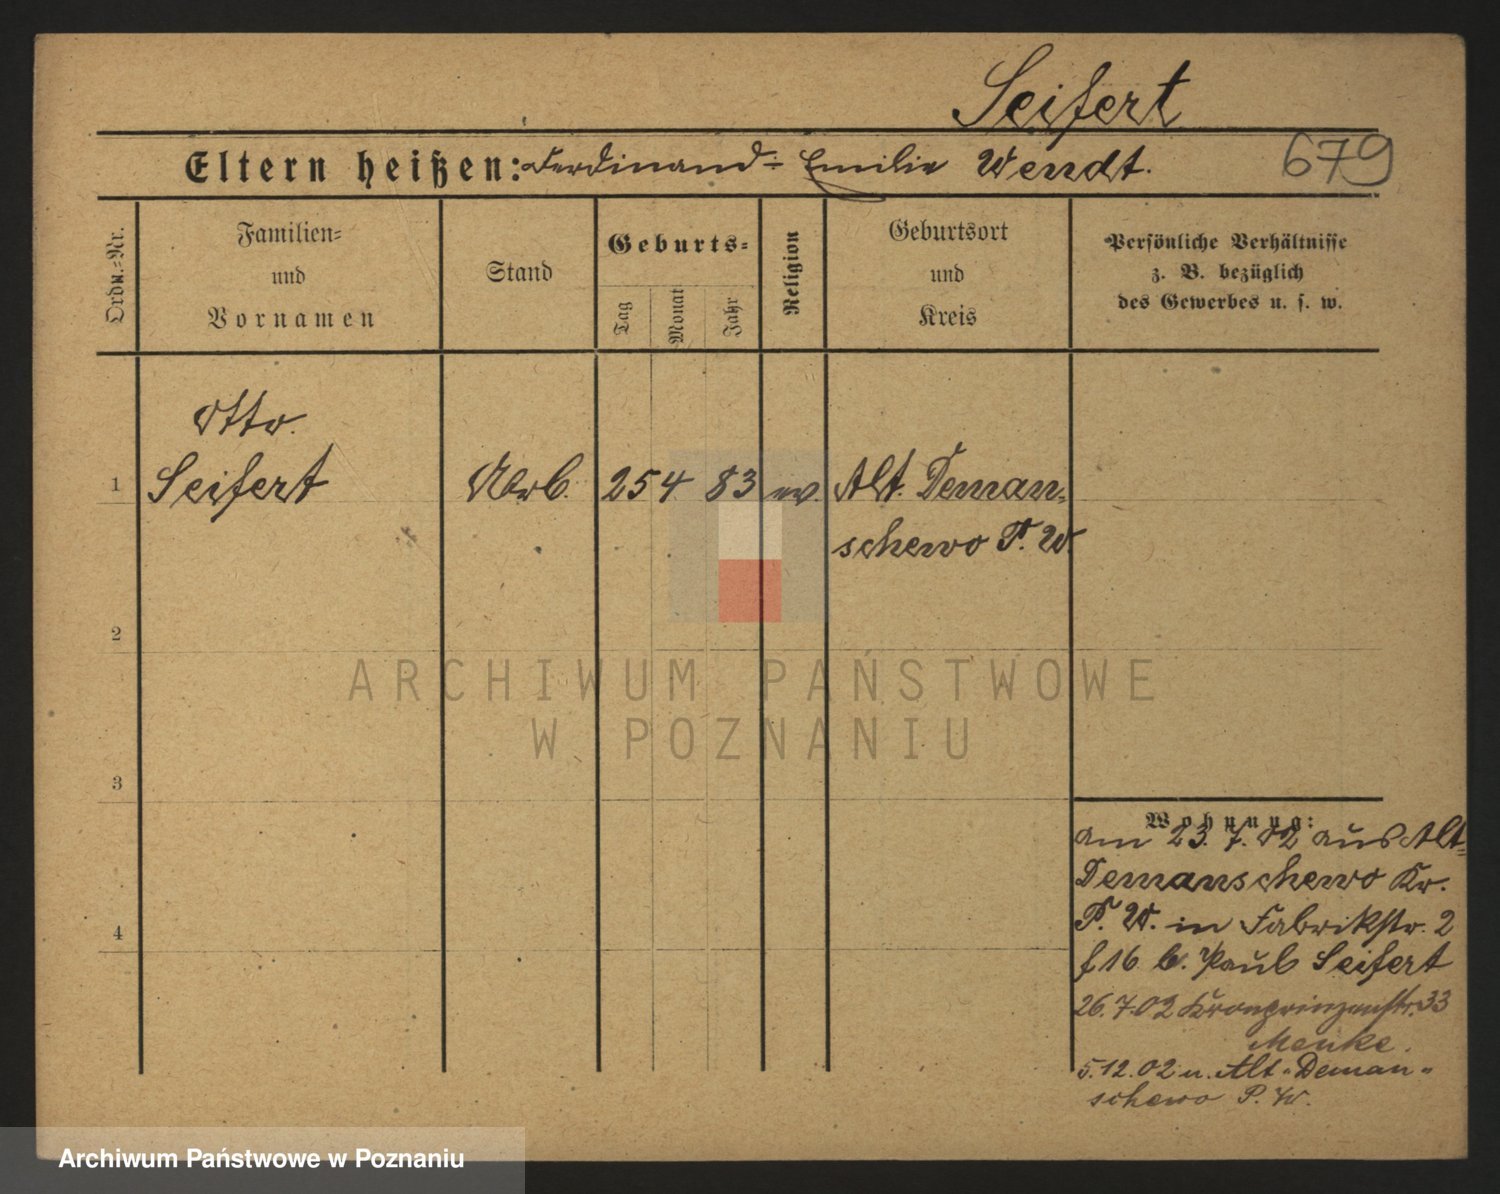 Seifert
Eltern heißen: Ferdinand u. Emilie Wendt.
679
Ordn.=Nr.
Familien=
und
Vornamen
Stand
Geburts=
Tag
Monat
Jahr
Religion
Geburtsort
und
Kreis
Persönliche Verhältnisse
z. B. bezüglich
des Gewerbes u. s. w.
Otto
1 Seifert Arb. 25 4 83 ev. Alt. Deman=
schewo P. W.
2
3
Wohnung:
am 23. 7. 02 aus Alt=
Demanschewo Kr.
4
P. W. in Fabrikstr. 2
16 b. Paul Seifert
26. 7. 02 Kronprinzenstr. 33
Menke.
5. 12. 02 n. Alt-Deman-
schewo P. W.
ARCHIWUM PAŃSTWOWE
W POZNANIU
Archiwum Państwowe w Poznaniu